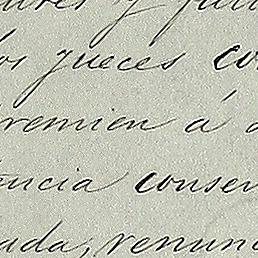 y
los jueces co
premien á
encia conser
ada, renunc